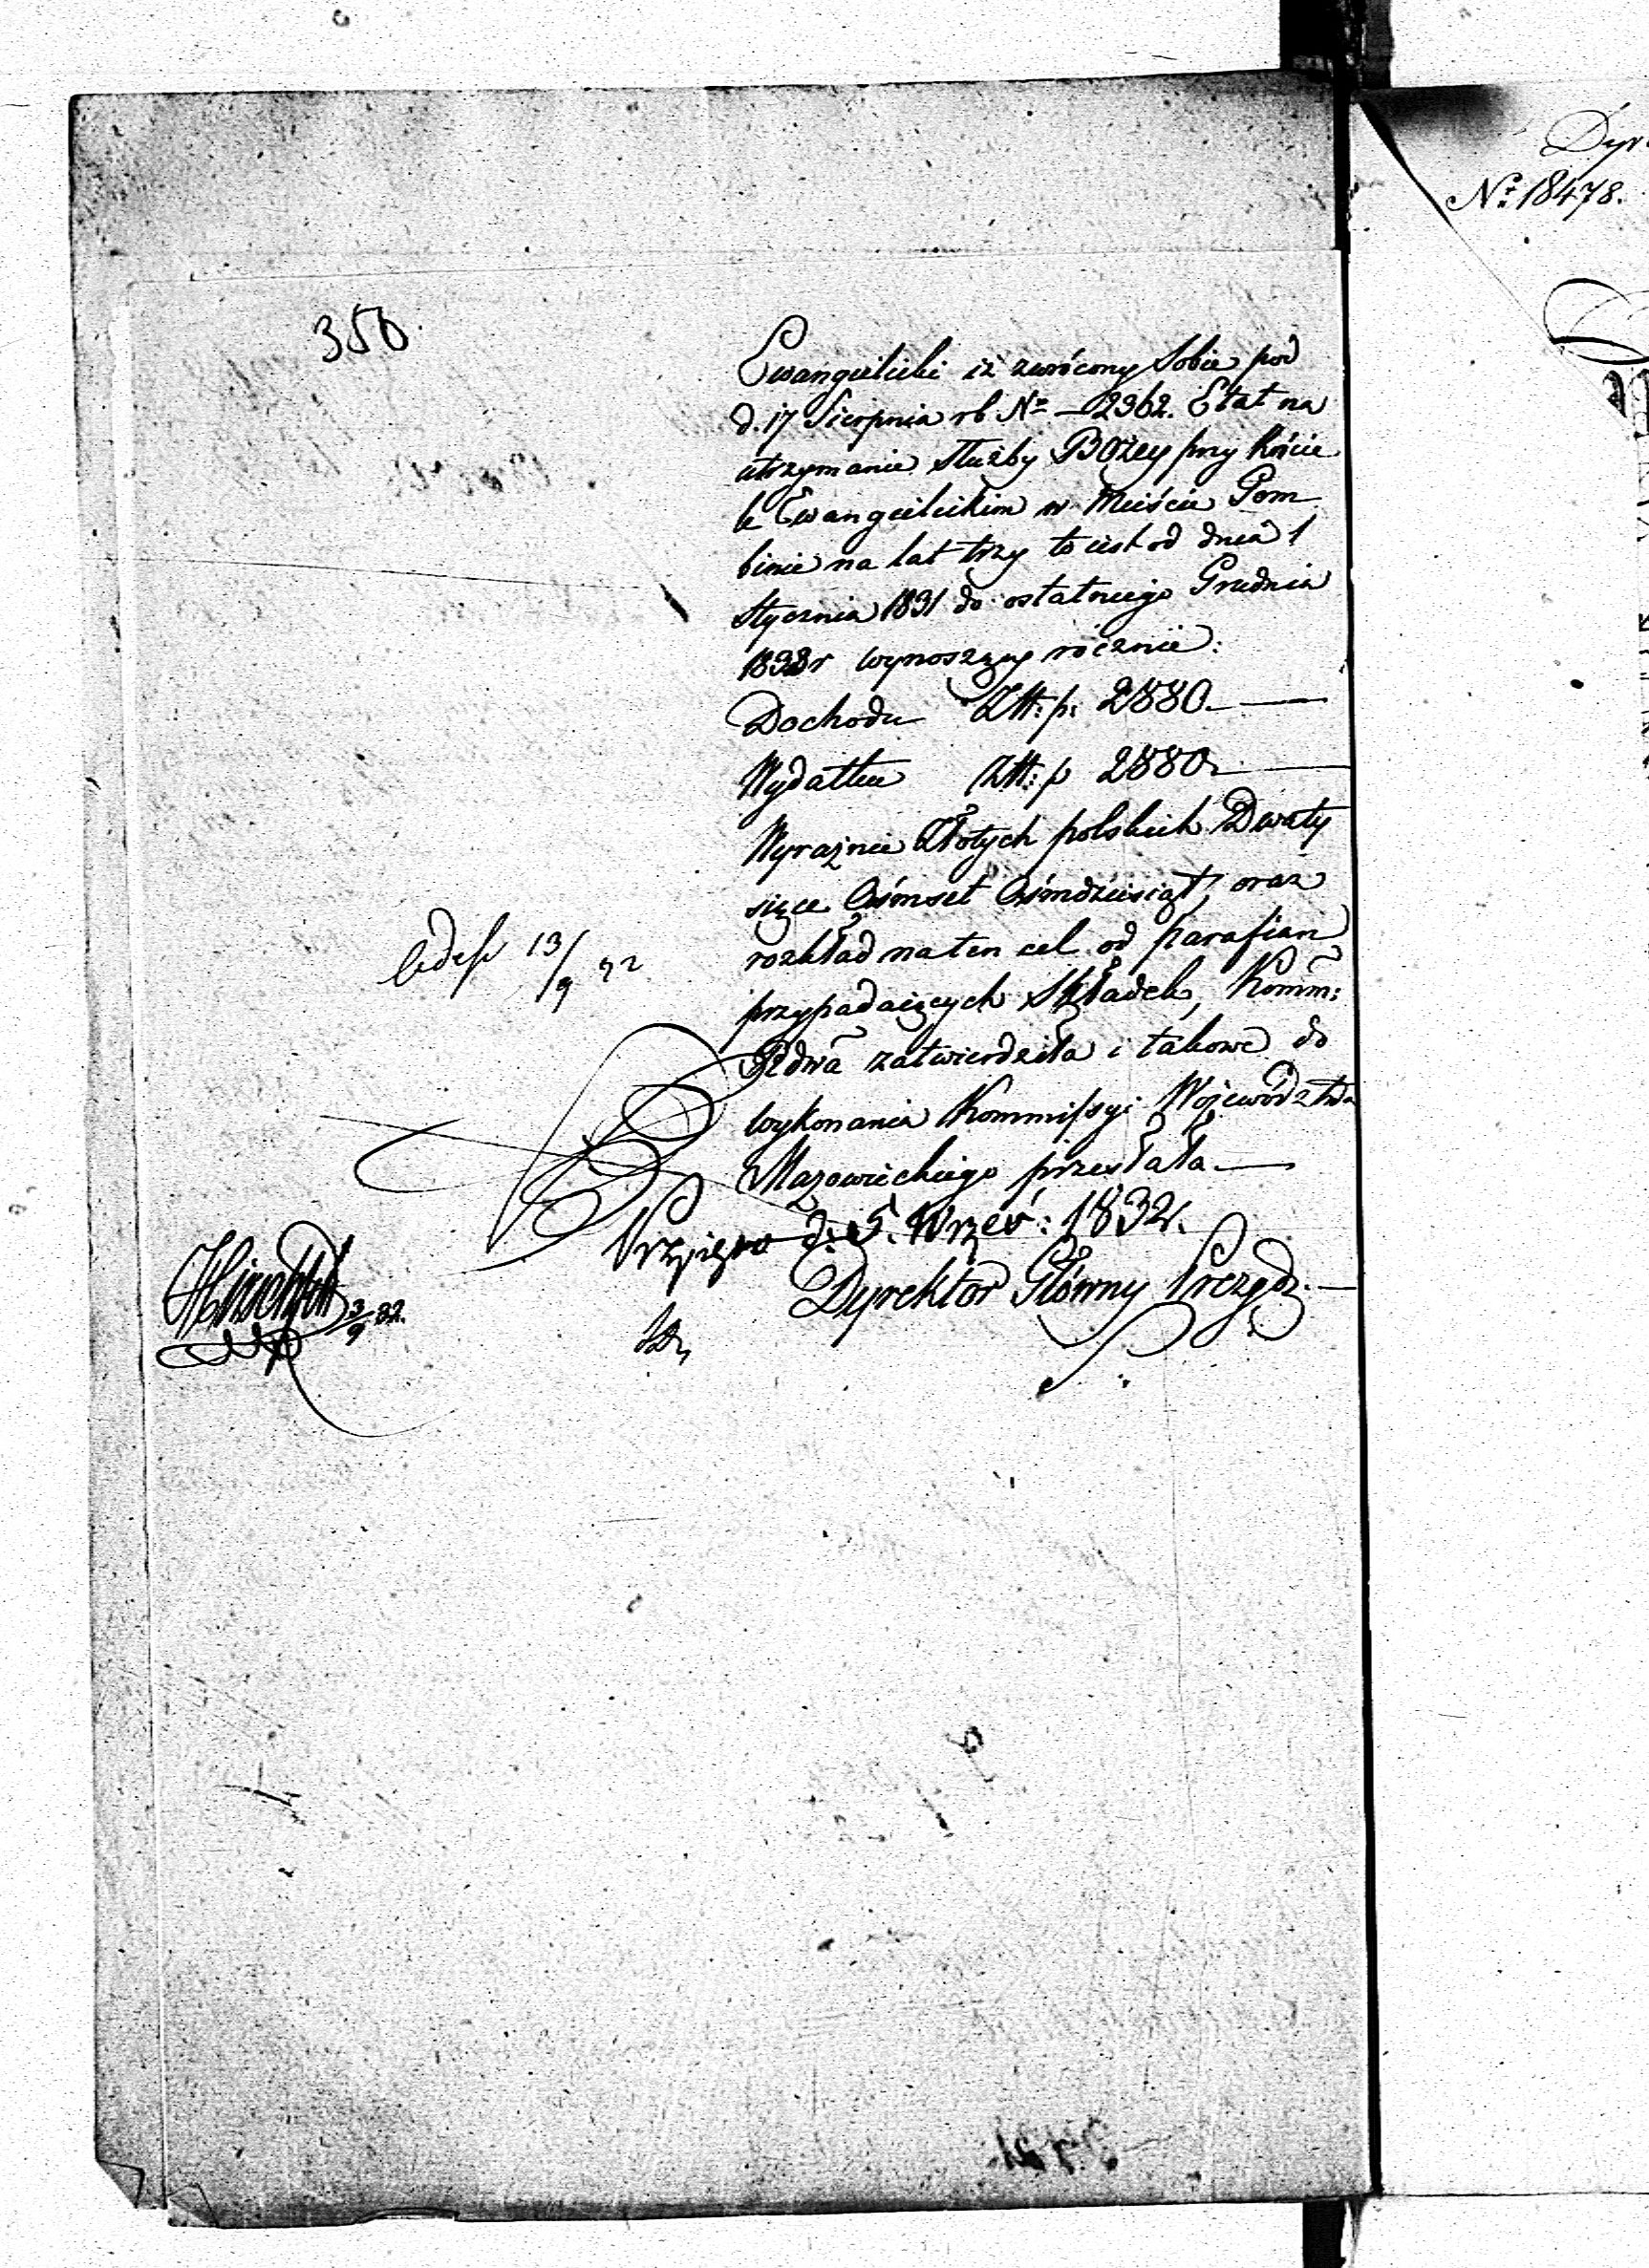 350.
Ewangelicki iż zwrócony sobie pod
d. 17 Sierpnia rb Nr — 2362. Etat na
utrzymanie służby Bożey przy Koście
le Ewangelickim w Mieście Gom
binie na lat trzy to iest od dnia 1
Stycznia 1831 do ostatniego Grudnia
1833r wynoszący rócznie:
Dochodu Złt: p: 2880.—
Wydatku Złt: p 2880.—
Wyraźnie Złotych polskich Dwaty
siące Ośmset Ośmdziesiąt, oraz
rozkład na ten cel od parafian
przypadaiących Składek, Komm:
Rdwa zatwierdziła i takowe do
wykonania Kommissyi Województwa
Mazowieckiego przesłała.—
d: 5. Wrześ: 1832r.
Dyrektor Główny Prezyd:—
13/9 32
3/9 32.
Dyr
No. 18478.